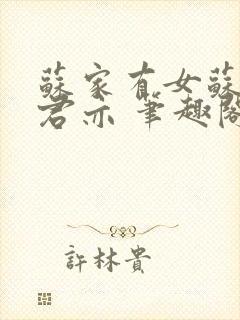 蘇家有女蘇
君亦 筆趣閣
許林貴